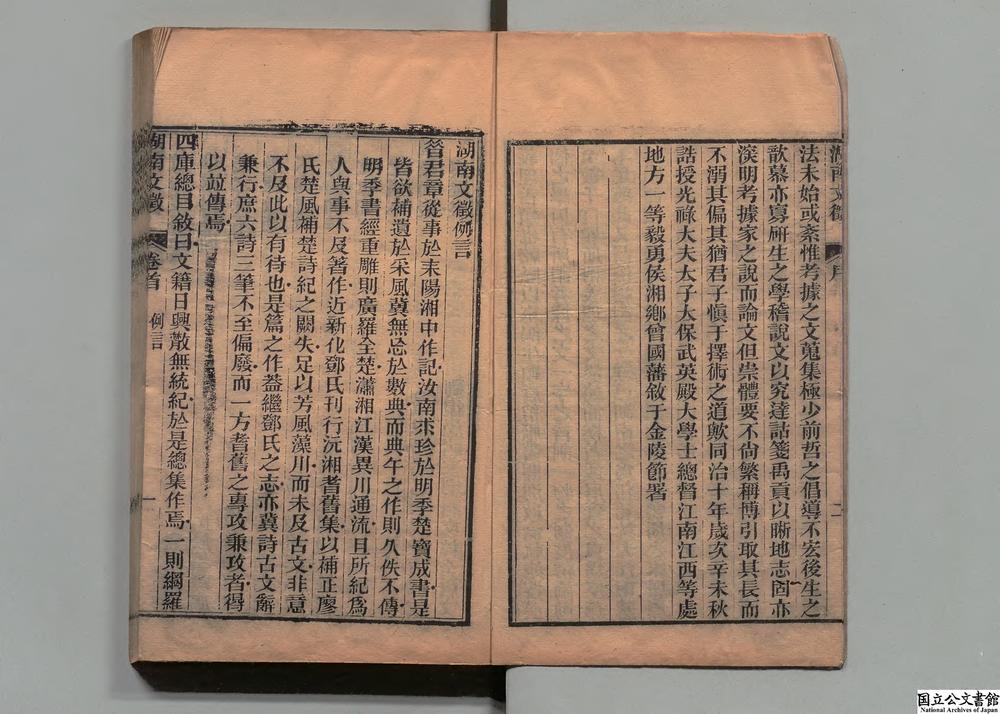 湖南文徵 序 二
法未始或紊惟考據之文蒐集極少前哲之倡導不宏後生之
歆慕亦寡硏生之學稽說文以究達詁箋禹貢以晰地志固亦
深明考據家之說而論文但崇體要不尙繁稱博引取其長而
不溺其偏其猶君子愼于擇術之道歟同治十年歲次辛未秋
誥授光祿大夫太子太保武英殿大學士總督江南江西等處
地方一等毅勇侯湘鄉曾國藩敘于金陵節署
湖南文徵例言
晉君章從事於耒陽湘中作記汝南求珍於明季楚寶成書是
皆欲補遺於采風冀無忩於數典而典午之作則久佚不傳
明季書經重雕則廣羅全楚瀟湘江漢異川通流且所紀爲
人與事不及著作近新化鄧氏刊行沅湘耆舊集以補正廖
氏楚風補楚詩紀之闕失足以芳風藻川而未及古文非意
不及此以有待也是篇之作葢繼鄧氏之志亦冀詩古文辭
兼行庶六詩三筆不至偏廢而一方耆舊之專攻兼攻者得
以竝傳焉
四庫總目敘曰文籍日興散無統紀於是總集作焉一則網羅
湖南文徵 卷首 例言 一
国立公文書館
National Archives of Japan